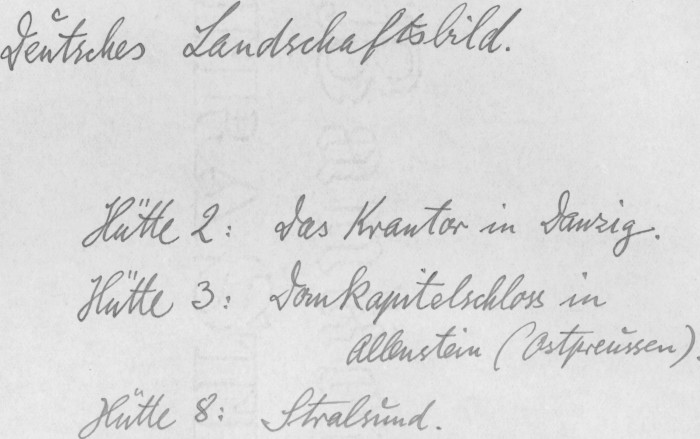 Deutsches Landschaftsbild.
Hütte 2: Das Krantor in Danzig.
Hütte 3: Domkapitelschloss in
Allenstein (Ostpreussen).
Hütte 8: Stralsund.